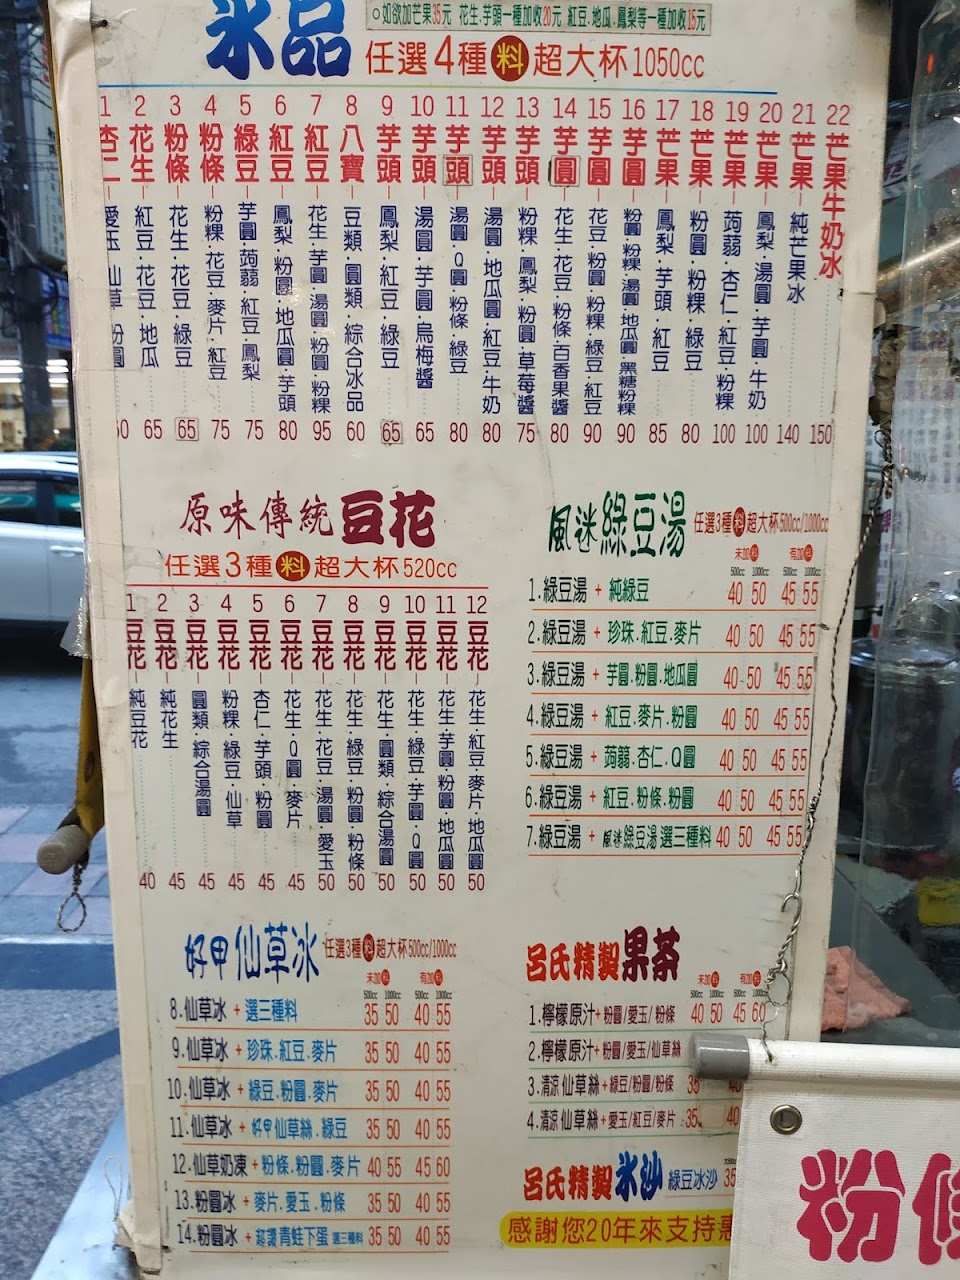 冰品
○如欲加芒果35元 花生.芋頭一種加收20元 紅豆.地瓜.鳳梨等一種加收15元
任選4種料超大杯1050cc
1 杏仁 愛玉 仙草 粉圓
2 花生 紅豆·花豆·地瓜 65
3 粉條 花生·花豆·綠豆 65
4 粉條 粉粿 花豆·麥片·紅豆 75
5 綠豆 芋圓·蒟蒻·紅豆·鳳梨 75
6 紅豆 鳳梨·粉圓·地瓜圓·芋頭 80
7 紅豆 花生·芋圓·湯圓·粉圓·粉粿 95
8 八寶 豆類·圓類·綜合冰品 60
9 芋頭 鳳梨·紅豆·綠豆 65
10 芋頭 湯圓·芋圓·烏梅醬 65
11 芋頭 湯圓·Q圓·粉條·綠豆 80
12 芋頭 湯圓·地瓜圓·紅豆·牛奶 80
13 芋頭 粉粿·鳳梨·粉圓·草莓醬 75
14 芋圓 花生·花豆·粉條·百香果醬 80
15 芋圓 花豆·粉圓·粉粿·綠豆·紅豆 90
16 芋圓 粉圓·粉粿·湯圓·地瓜圓·黑糖粉粿 90
17 芒果 鳳梨·芋頭·紅豆 85
18 芒果 粉圓·粉粿·綠豆 80
19 芒果 蒟蒻·杏仁·紅豆·粉粿 100
20 芒果 鳳梨·湯圓·芋圓·牛奶 100
21 芒果 純芒果冰 140
22 芒果牛奶冰 150
原味傳統豆花
任選3種料超大杯520cc
1 豆花 純豆花 40
2 豆花 純花生 45
3 豆花 圓類·綜合湯圓 45
4 豆花 粉粿·綠豆·仙草 45
5 豆花 杏仁·芋頭·粉圓 45
6 豆花 花生·Q圓·麥片 45
7 豆花 花生·花豆·湯圓·愛玉 50
8 豆花 花生·綠豆·粉圓·粉條 50
9 豆花 花生·圓類·綜合湯圓 50
10 豆花 花生·綠豆·芋圓·Q圓 50
11 豆花 花生·芋圓·粉圓·地瓜圓 50
12 豆花 花生·紅豆·麥片·地瓜圓 50
風迷綠豆湯 任選3種料超大杯500cc/1000cc
未加料 有加料
500cc 1000cc 500cc 1000cc
1.綠豆湯+純綠豆 40 50 45 55
2.綠豆湯+珍珠.紅豆.麥片 40 50 45 55
3.綠豆湯+芋圓.粉圓.地瓜圓 40 50 45 55
4.綠豆湯+紅豆.麥片.粉圓 40 50 45 55
5.綠豆湯+蒟蒻.杏仁.Q圓 40 50 45 55
6.綠豆湯+紅豆.粉條.粉圓 40 50 45 55
7.綠豆湯+風迷綠豆湯選三種料 40 50 45 55
好甲仙草冰 任選3種料超大杯500cc/1000cc
未加料 有加料
500cc 1000cc 500cc 1000cc
8.仙草冰+選三種料 35 50 40 55
9.仙草冰+珍珠.紅豆.麥片 35 50 40 55
10.仙草冰+綠豆.粉圓.麥片 35 50 40 55
11.仙草冰+好甲仙草絲.綠豆 35 50 40 55
12.仙草奶凍+粉條.粉圓.麥片 40 55 45 60
13.粉圓冰+麥片.愛玉.粉條 35 50 40 55
14.粉圓冰+超讚青蛙下蛋選三種料 35 50 40 55
呂氏精製果茶
未加料 有加料
500cc 1000cc 500cc 1000cc
1.檸檬原汁+粉圓/愛玉/粉條 40 50 45 60
2.檸檬原汁+粉圓/愛玉/仙草絲
3.清涼仙草絲+綠豆/粉圓/粉條 35 40
4.清涼仙草絲+愛玉/紅豆/麥片 35 40
呂氏精製冰沙 綠豆冰沙 35
感謝您20年來支持惠
粉條